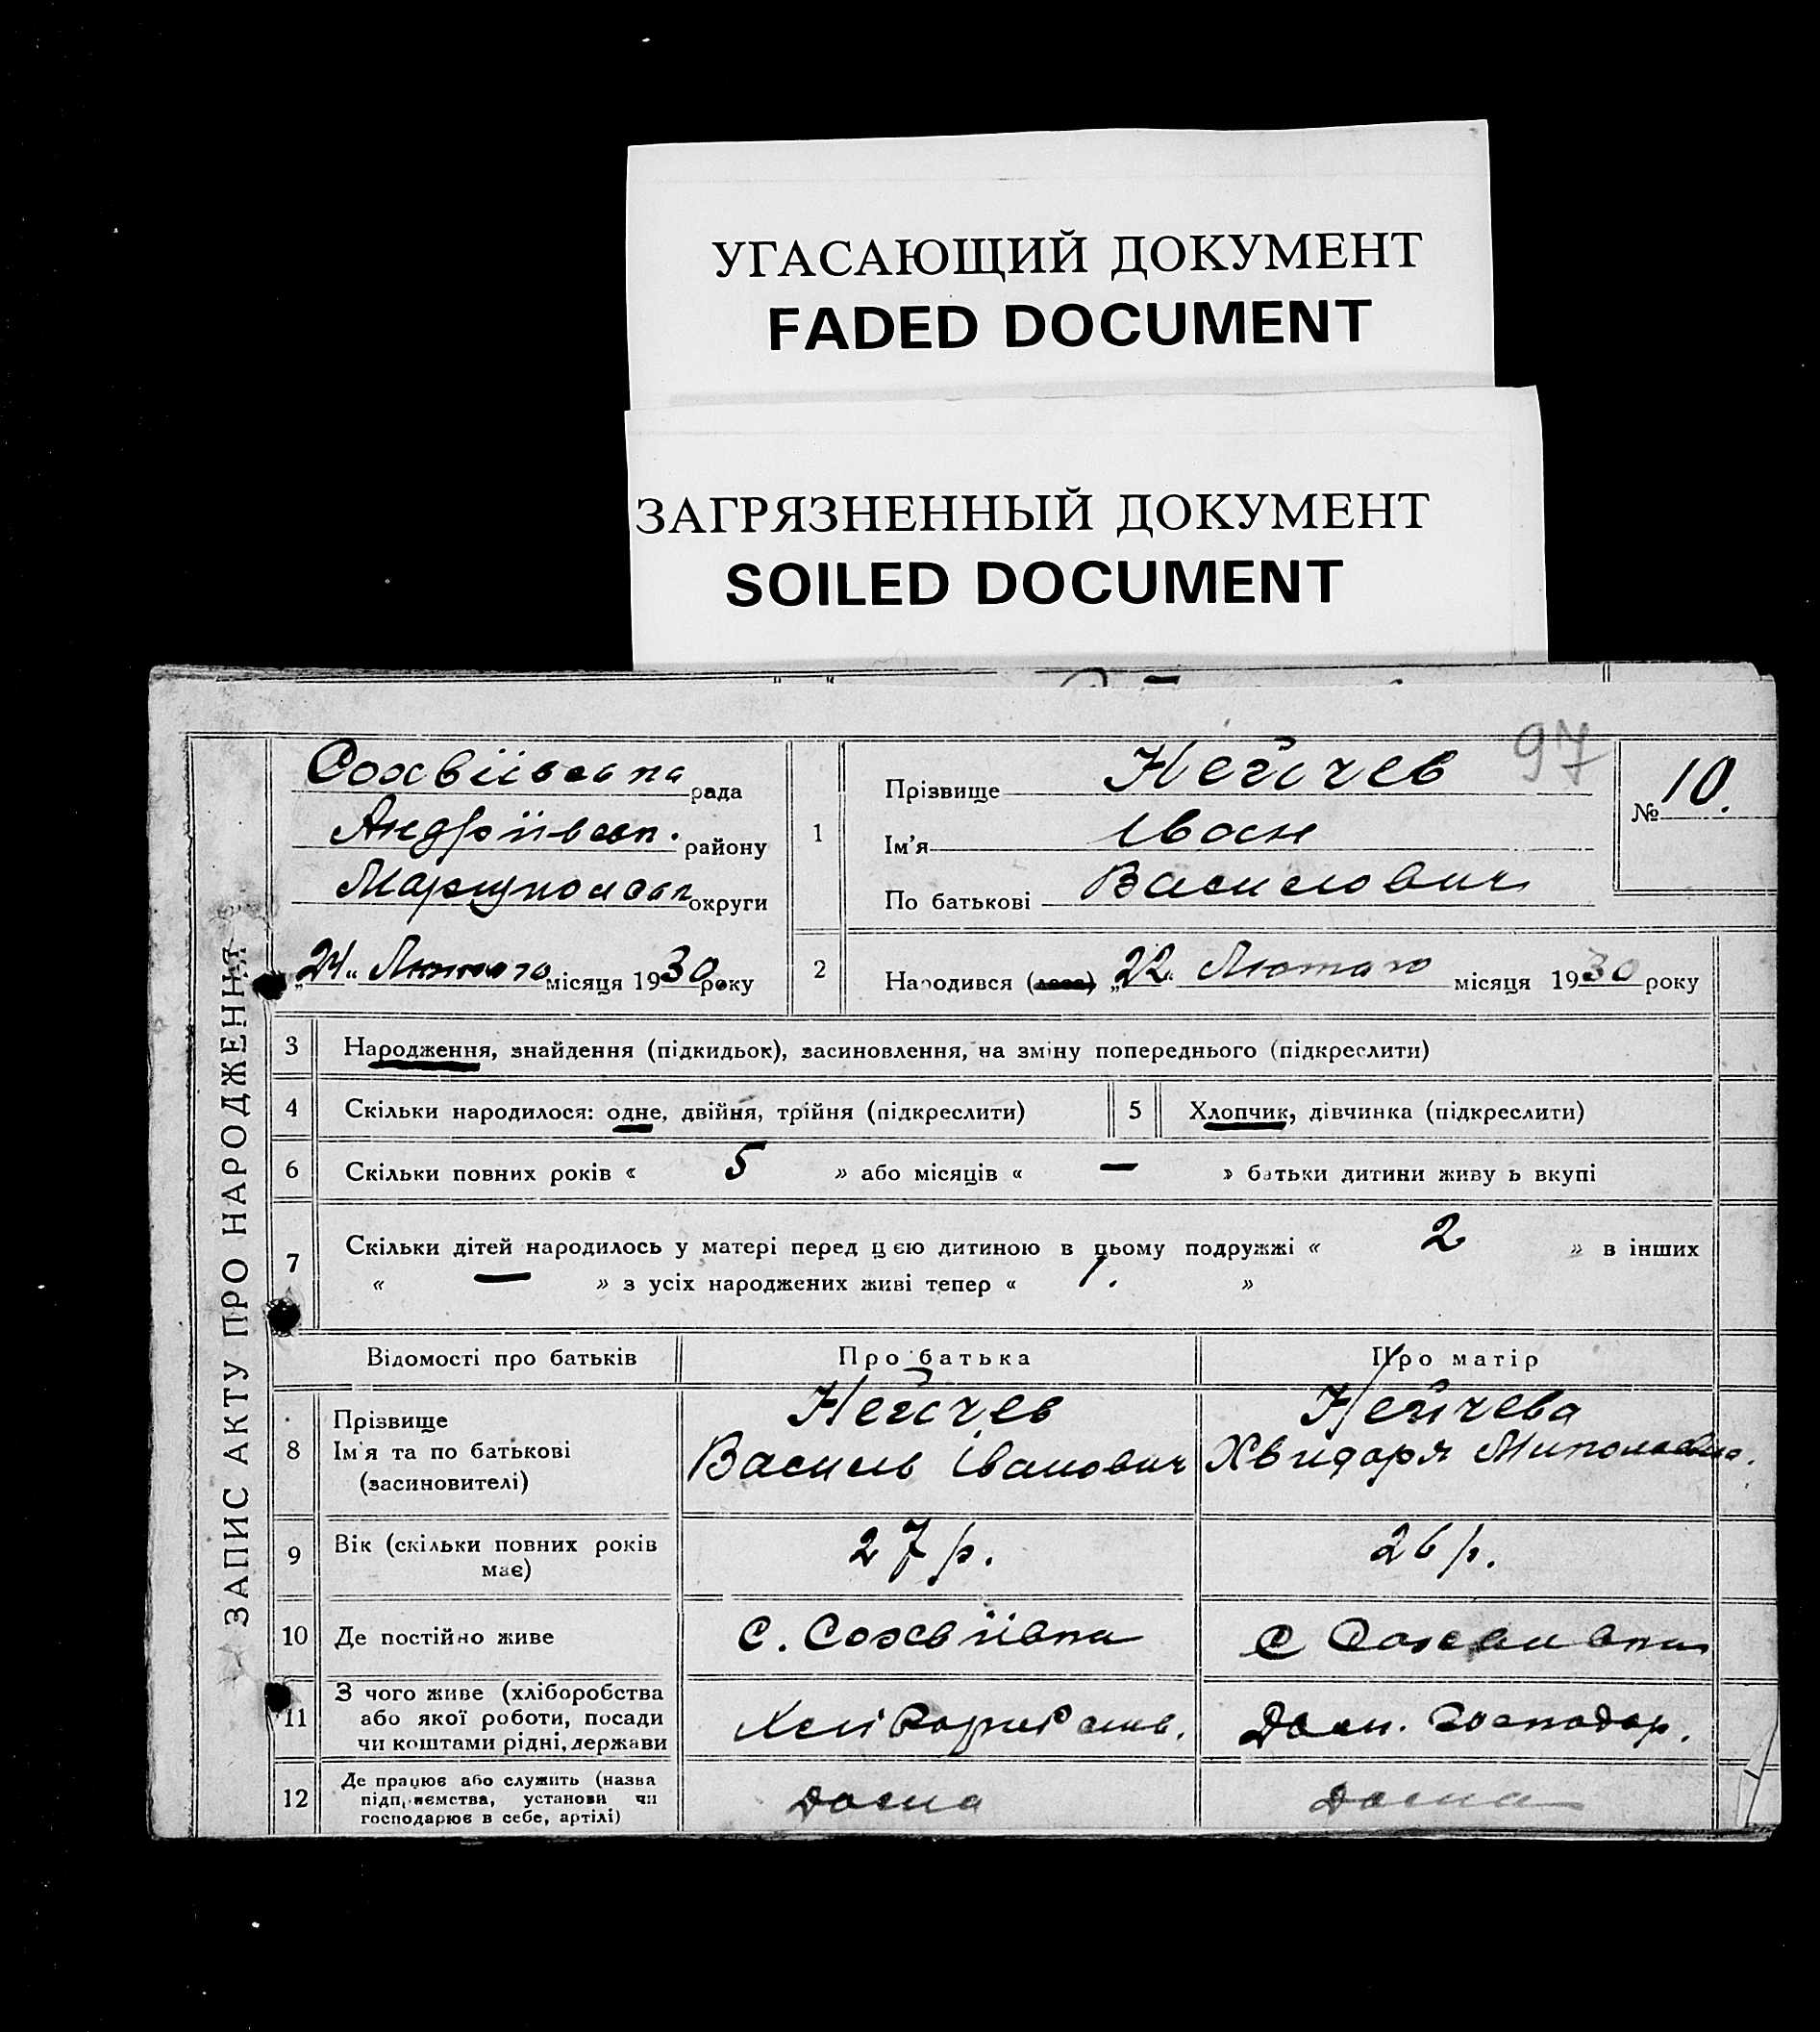 УГАСАЮЩИЙ ДОКУМЕНТ
FADED DOCUMENT
ЗАГРЯЗНЕННЫЙ ДОКУМЕНТ
SOILED DOCUMENT
ЗАПИС АКТУ ПРО НАРОДЖЕННЯ
Софіївська рада
Андріївськ. району
Маріупольськ округи
„24“ Лютого місяця 1930 року
97
№ 10.
1
Прізвище Нейчев
Ім'я Іван
По батькові Василович
2
Народився (лася) „22“ Лютого місяця 1930 року
3 Народження, знайдення (підкидьок), засиновлення, на зміну попереднього (підкреслити)
4 Скільки народилося: одне, двійня, трійня (підкреслити)
5 Хлопчик, дівчинка (підкреслити)
6 Скільки повних років « 5 » або місяців « — » батьки дитини живу ь вкупі
7 Скільки дітей народилось у матері перед цією дитиною в цьому подружжі « 2 » в інших
« — » з усіх народжених живі тепер « 1. »
Відомості про батьків Про батька Про матір
8 Прізвище Нейчев Нейчева
Ім'я та по батькові Василь Іванович Хвидоря Миколаївна.
(засиновителі)
9 Вік (скільки повних років має) 27 р. 26 р.
10 Де постійно живе с. Софіївка с
11 З чого живе (хліборобства
або якої роботи, посади
чи коштами рідні, держави
Хліборобств. Дом. Господар.
12 Де працює або служить (назва
підприємства, установи чи
господарює в себе, артілі)
Дома Дома